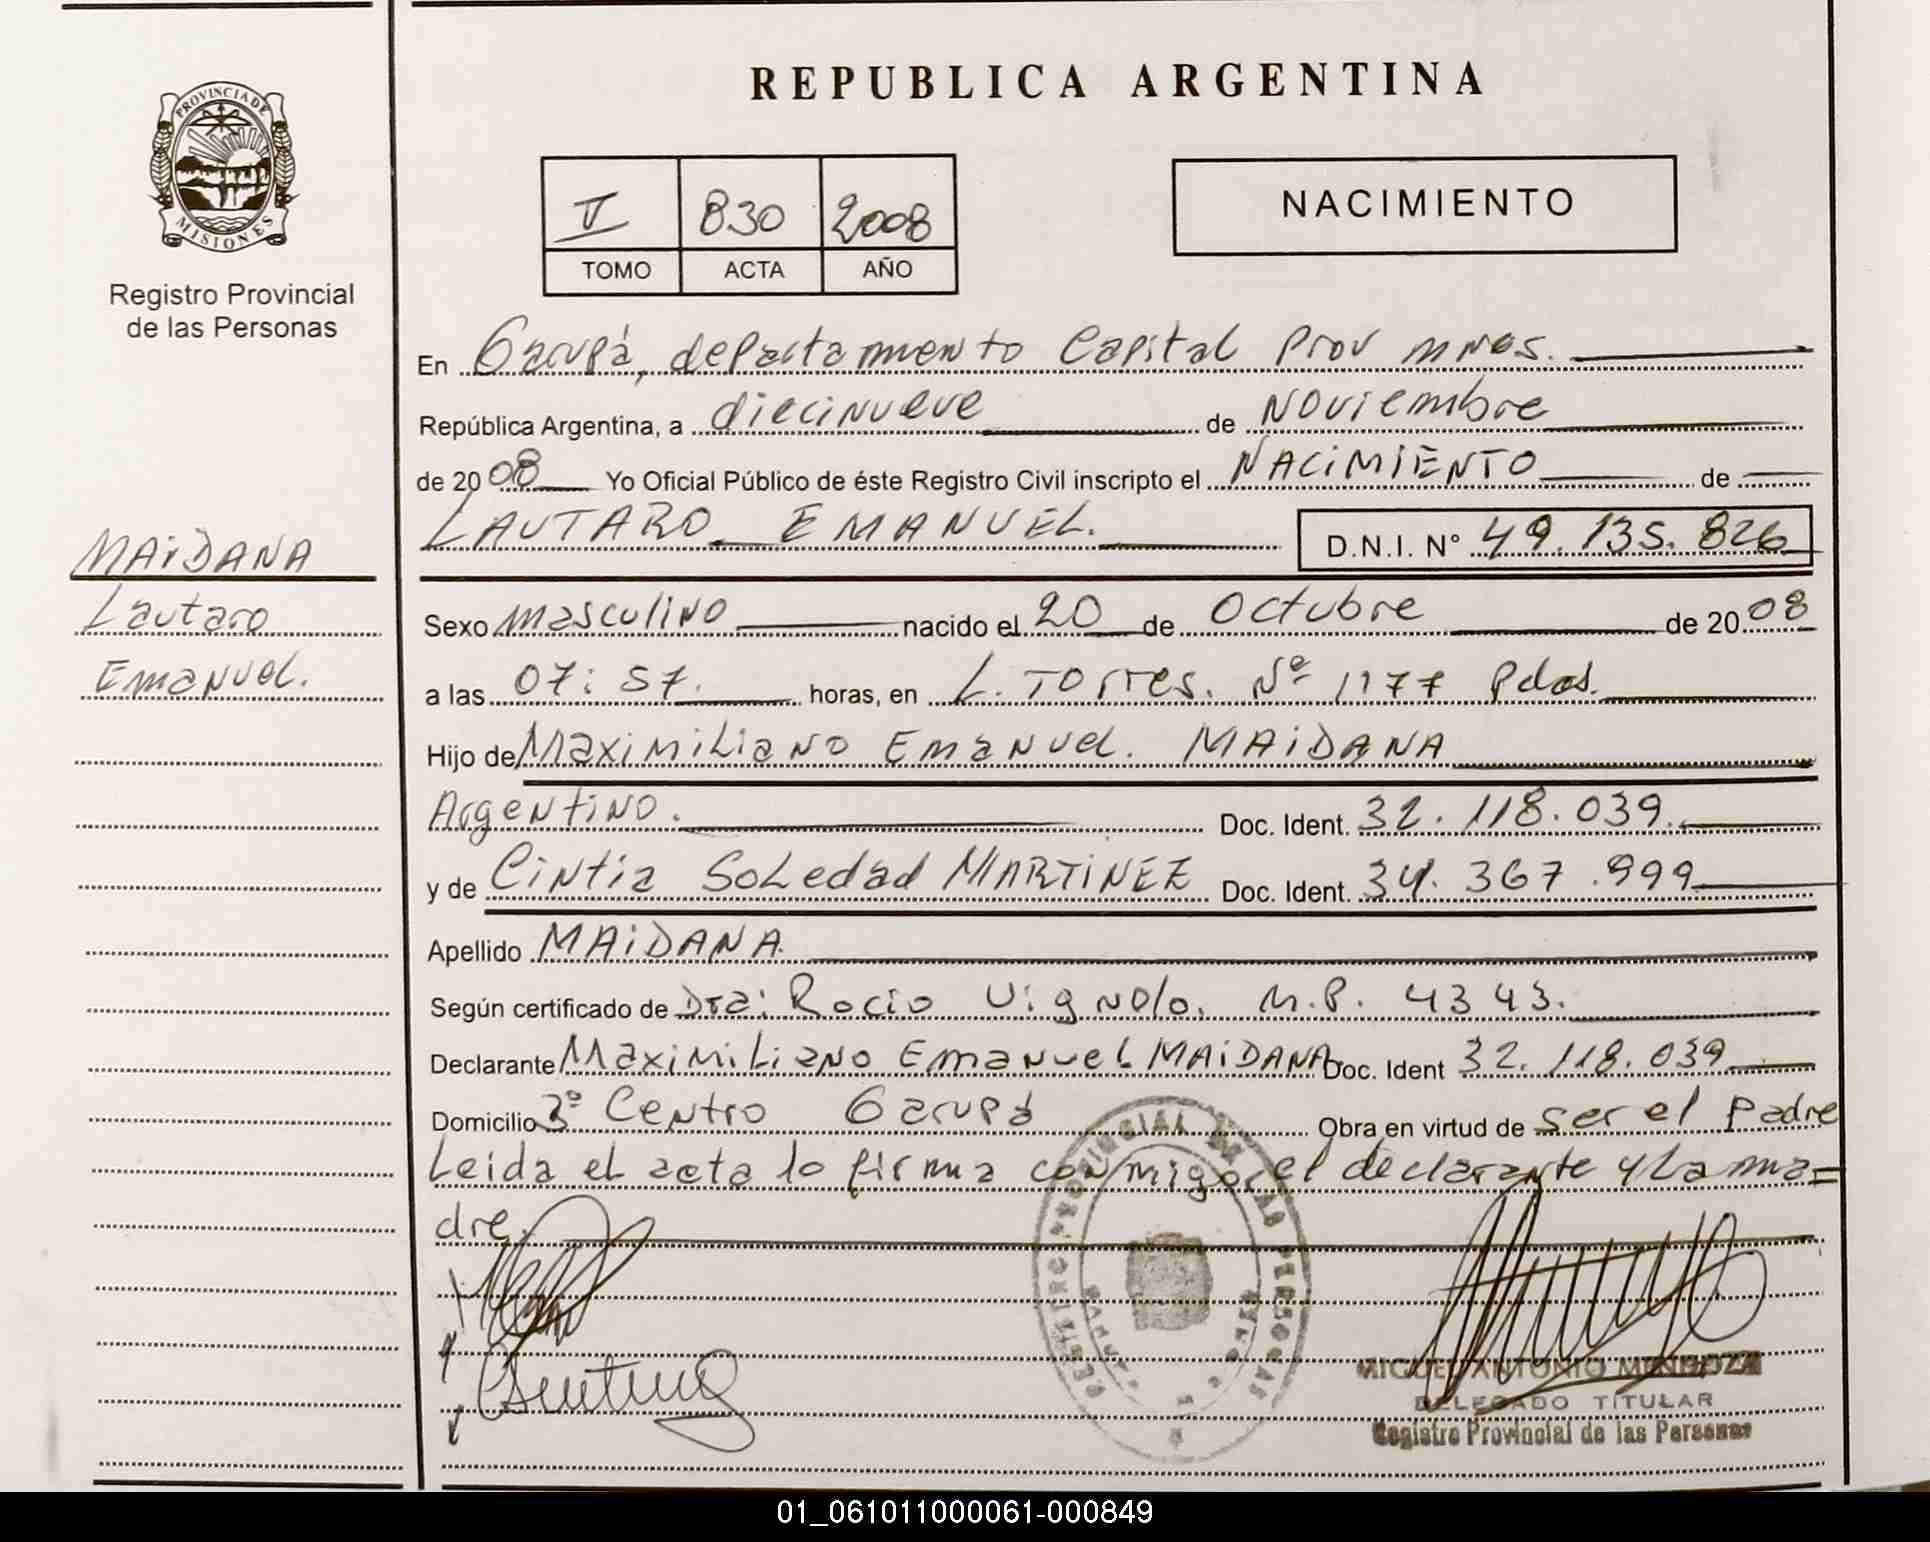 REPUBLICA ARGENTINA
PROVINCIA DE
MISIONES
Registro Provincial
de las Personas
V 830 2008
TOMO ACTA AÑO
NACIMIENTO
MAIDANA
Lautaro
Emanuel.
En Garupá, departamento Capital Prov mnes.
República Argentina, a diecinueve de Noviembre
de 2008 Yo Oficial Público de éste Registro Civil inscripto el NACIMIENTO de
LAUTARO EMANUEL. D.N.I. N° 49.135.826
Sexo masculino nacido el 20 de Octubre de 2008
a las 07:57. horas, en L. Torres. Nº 1177 Pdas.
Hijo de Maximiliano Emanuel. MAIDANA
Argentino. Doc. Ident. 32.118.039.
y de Cintia Soledad MARTINEZ Doc. Ident. 34.367.999
Apellido MAIDANA.
Según certificado de Dra: Rocio Vignolo. M.P. 4343.
Declarante Maximiliano Emanuel MAIDANA Doc. Ident 32.118.039
Domicilio 3º Centro Garupá Obra en virtud de ser el padre
Leida el acta lo firma conmigo, el declarante y la ma=
dre.
REGISTRO PROVINCIAL DE LAS PERSONAS
MIGUEL ANTONIO MENDOZA
DELEGADO TITULAR
Registro Provincial de las Personas
01_061011000061-000849